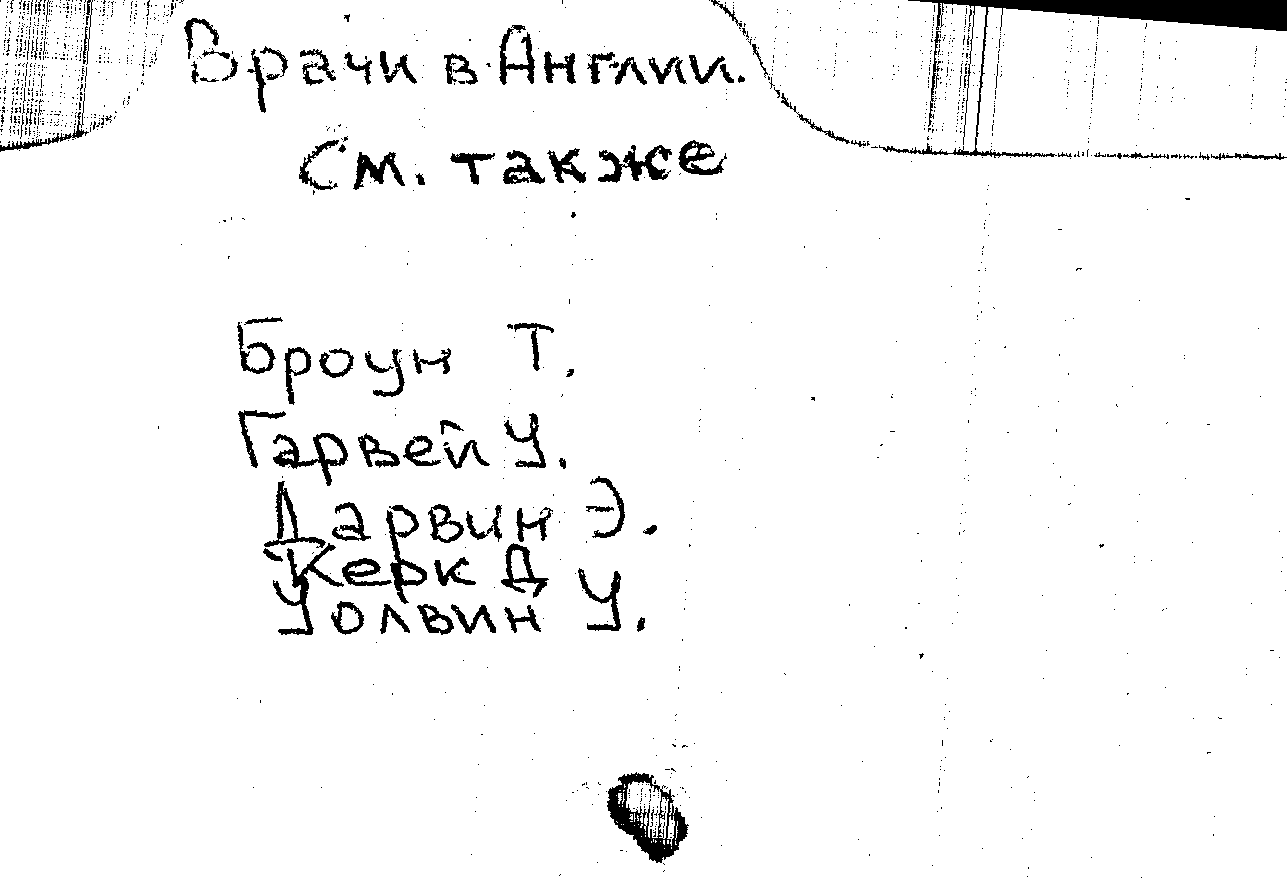 Врачи в Англии.
См. также
Броун Т.
Гарвей У.
Дарвин Э.
Керк Д
Уолвин У.